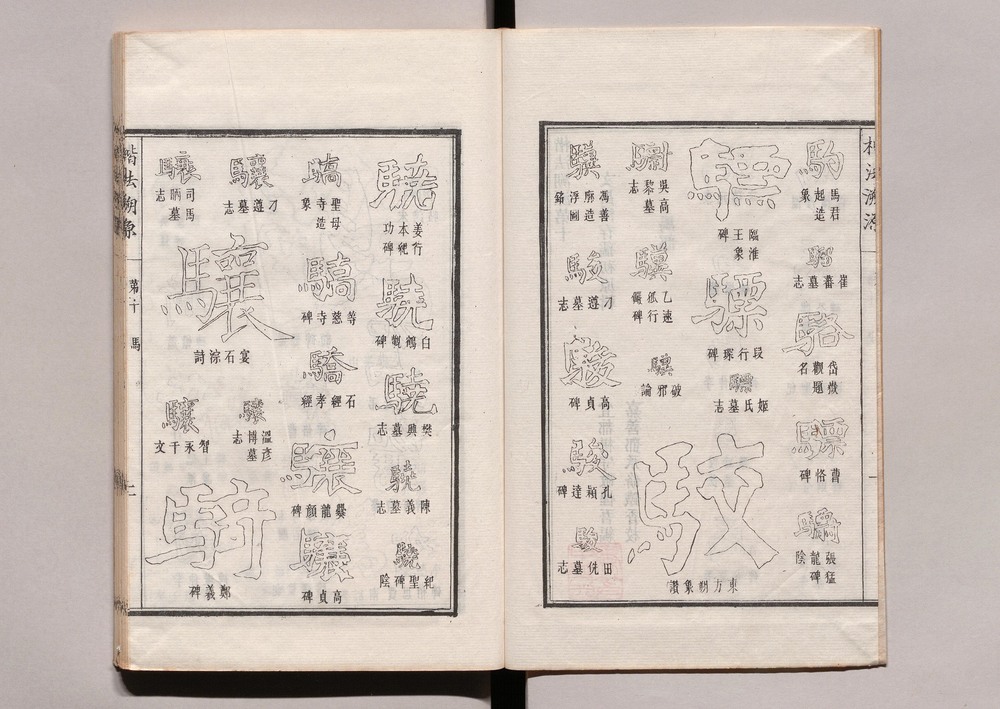 楷法溯源
駒
馬君起造象
崔蕃墓志
駱
岱嶽觀題名
驃
曹恪碑
張猛龍碑陰
驃
臨淮王象碑
驃
段行琛碑
姬氏墓志
駮
東方朔象讚
吳高黎墓志
驥
乙速孤行儼碑
驥
破邪論
驥
馮善廓造浮圖銘
駿
刁遵墓志
駿
高貞碑
駿
孔穎達碑
駿
田侁墓志
驍
姜行本紀功碑
驍
白鶴觀碑
驍
樊興墓志
驍
陳義墓志
驍
紀聖碑陰
驕
聖母寺造象
驕
等慈寺碑
驕
石經孝經
驤
爨龍顏碑
驤
高貞碑
驤
刁遵墓志
驤
司馬昞墓志
驤
宴石淙詩
驤
溫彥博墓志
驤
智永千文
騎
鄭羲碑
楷法溯源
第十 馬